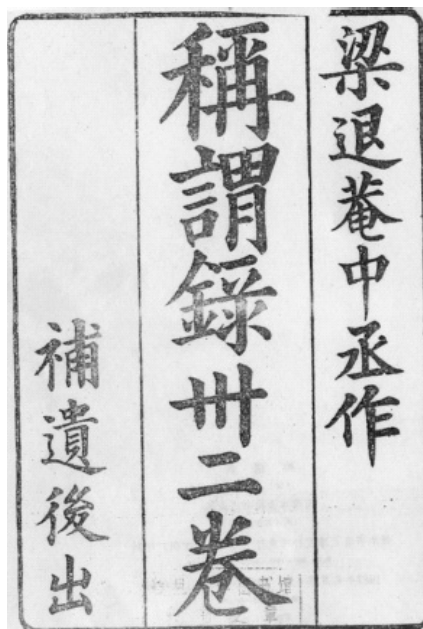 梁退菴中丞作
稱謂錄卅二卷
補遺後出